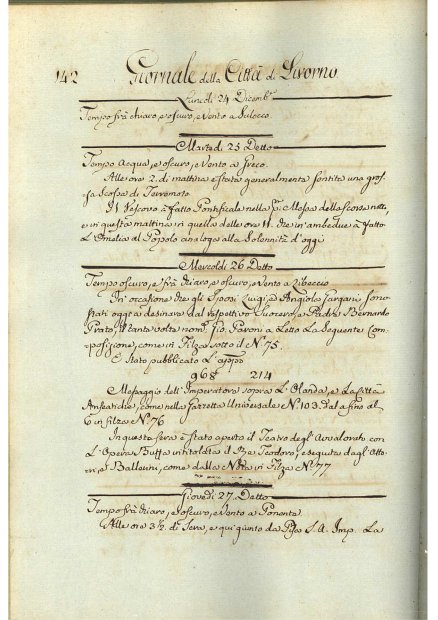 142 Giornale della Città di Livorno
Lunedì 24 Dicemb.e
Tempo frà chiaro, e oscuro, e Vento a Scilocco
Martedì 25 Detto
Tempo Acqua, e oscuro, e Vento a Greco.
Alle ore 2. di mattina è stata generalmente sentita una gros-
sa scossa di Terremoto
Il Vescovo à fatto Pontificale nella Messa della scorsa notte,
e in questa mattina in quella delle ore 11. che in ambedue à fatto
L'Omelia al Popolo analoga alla Solennità d'oggi
Mercoldì 26 Detto
Tempo oscuro, e frà chiaro, e oscuro, e Vento a Libeccio
In occasione che gli Sposi Luigi, e Angiola Fargani sono
stati oggi a desinare dal respettivo Suocero, e Padre Bernardo
Prato, il tante volte nom.o Gio. Paroni a Letto La seguente Com-
posizione, come in Filza sotto il N.o 75.
È stato pubblicato L'
968 214
Messaggio dell'Imperatore sopra L'Olanda, e Le Città
Anseatiche, come nella Gazzetta Universale N.o 103. Pal a fino al
6 in filza N.o 76
In questa sera è stato aperto il Teatro degl'Avvalorati con
L'Opera Buffa intitolata il Rè Teodoro, eseguita dagl'Atto-
ri, e Ballerini, come dalla Nota in Filza N.o 77
Giovedì 27. Detto
Tempo frà chiaro, e oscuro, e Vento a Ponente
Alle ore 3½ di Sera, è qui giunto da Pisa S. A. Imp. La